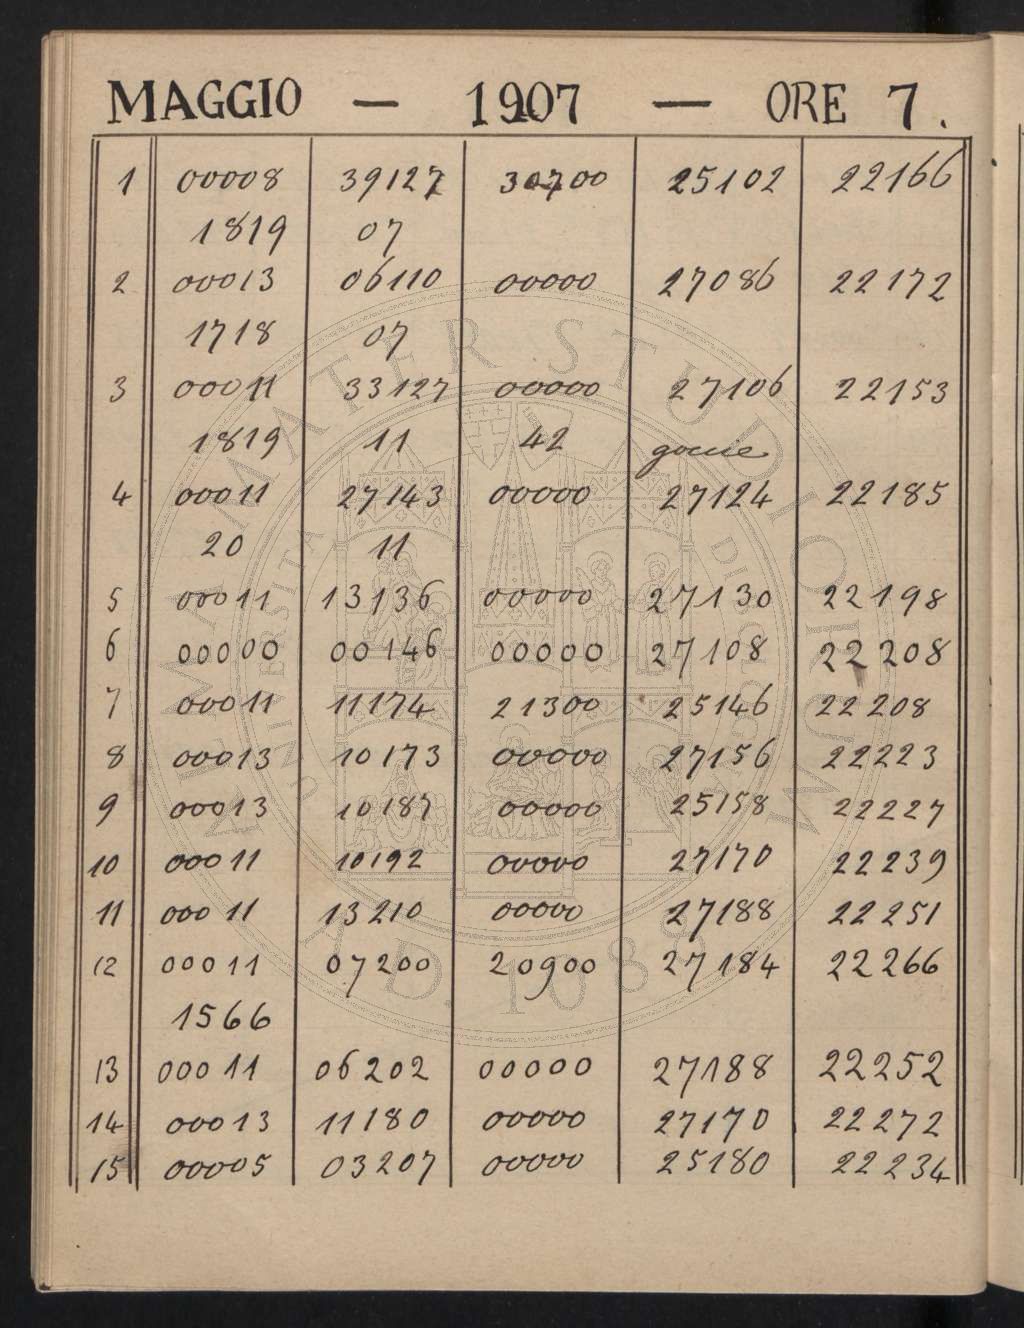 MAGGIO — 1907 — ORE 7.
1 00008 39127 30700 25102 22166
1819 07
2 00013 06110 00000 27086 22172
1718 07
3 00011 33127 00000 27106 22153
1819 11 42 goccie
4 00011 27143 00000 27124 22185
20 11
5 00011 13136 00000 27130 22198
6 00000 00146 00000 27108 22208
7 00011 11174 21300 25146 22208
8 00013 10173 00000 27156 22223
9 00013 10187 00000 25158 22227
10 00011 10192 00000 27170 22239
11 00011 13210 00000 27188 22251
12 00011 07200 20900 27184 22266
1566
13 00011 06202 00000 27188 22252
14 00013 11180 00000 27170 22272
15 00005 03207 00000 25180 22234
ALMA MATER STUDIORUM
UNIVERSITÀ DI BOLOGNA
A.D. 1088